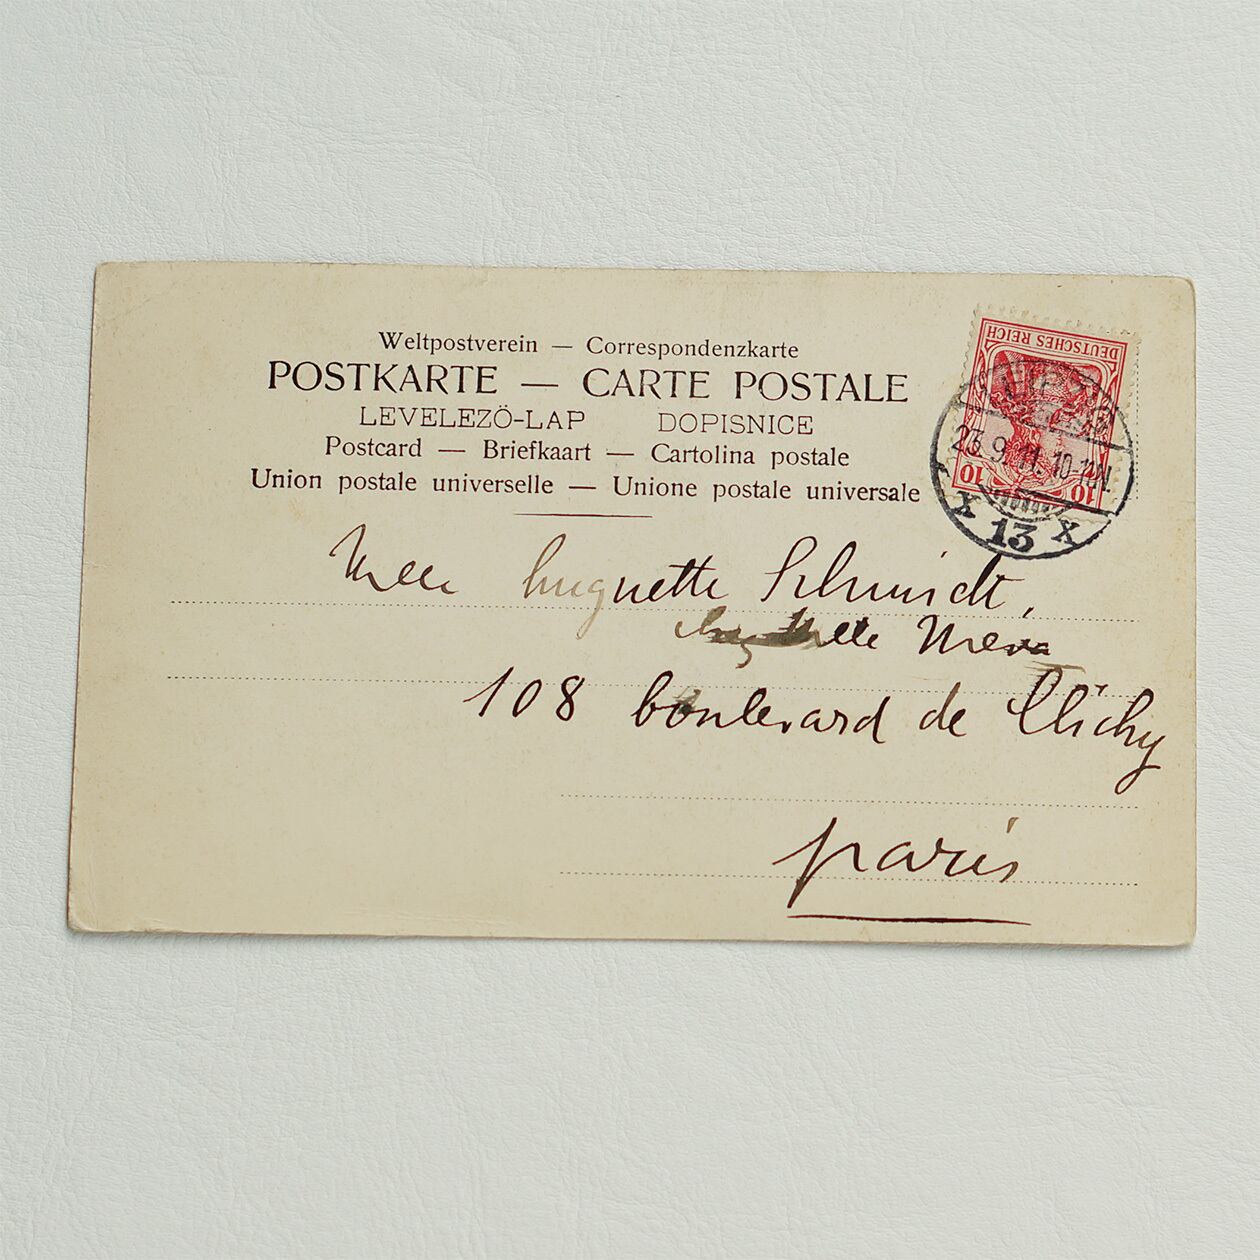 Weltpostverein — Correspondenzkarte
POSTKARTE — CARTE POSTALE
LEVELEZÖ-LAP DOPISNICE
Postcard — Briefkaart — Cartolina postale
Union postale universelle — Unione postale universale
DEUTSCHES REICH
10 10
23.9.11.10-11N.
X 13 X
huguette Schmidt,
108 boulevard de Clichy
paris